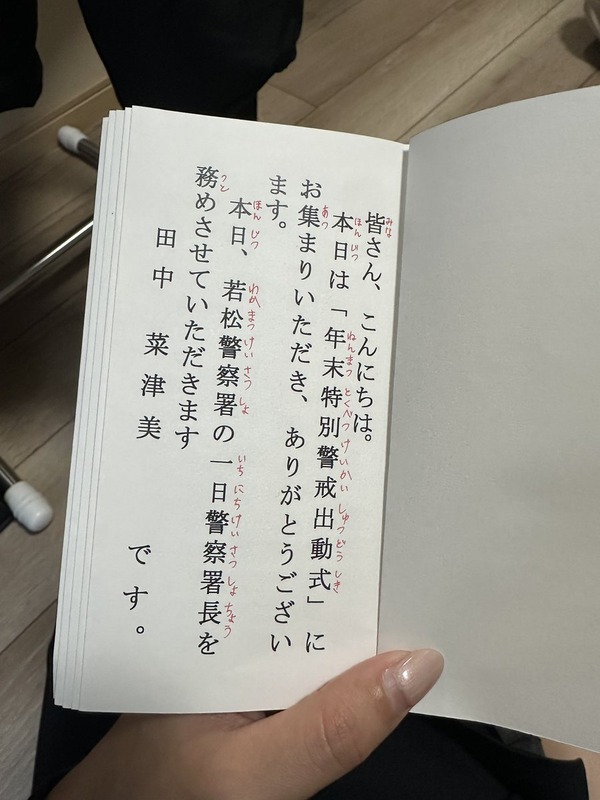 皆さん、こんにちは。
みな
本日は「年末特別警戒出動式」に
ほんじつ ねんまつ とくべつ けいかい しゅつどう しき
お集まりいただき、ありがとうござい
あつ
ます。
本日、若松警察署の一日警察署長を
ほんじつ わかまつ けいさつ しょ いちにち けいさつ しょ ちょう
務めさせていただきます
つと
田中 菜津美 です。